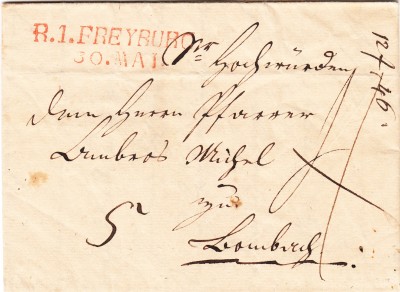 R.1.FREYBURG
30.MAI
Sr Hochwürden
dem Herrn Pfarrer
Ambros Michel
zu
Bombach.